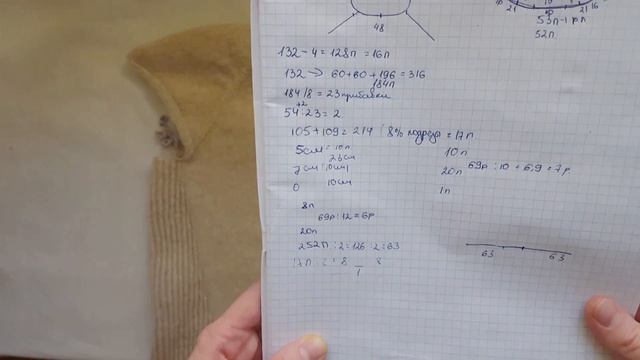 48
21
21 16
53п-1рп
52п
132-4=128п=16п
132 → 60+60+196=316
184п
184/8=23 прибавки
+2
54:23=2
105+109=214 8% подреза=17п
5см=10п
23см
7см 10см
0 10см
8п
69р:12=6р
20п
252п:2=126:2=63
10п
20п 69р:10=6,9=7р
1п
63 63